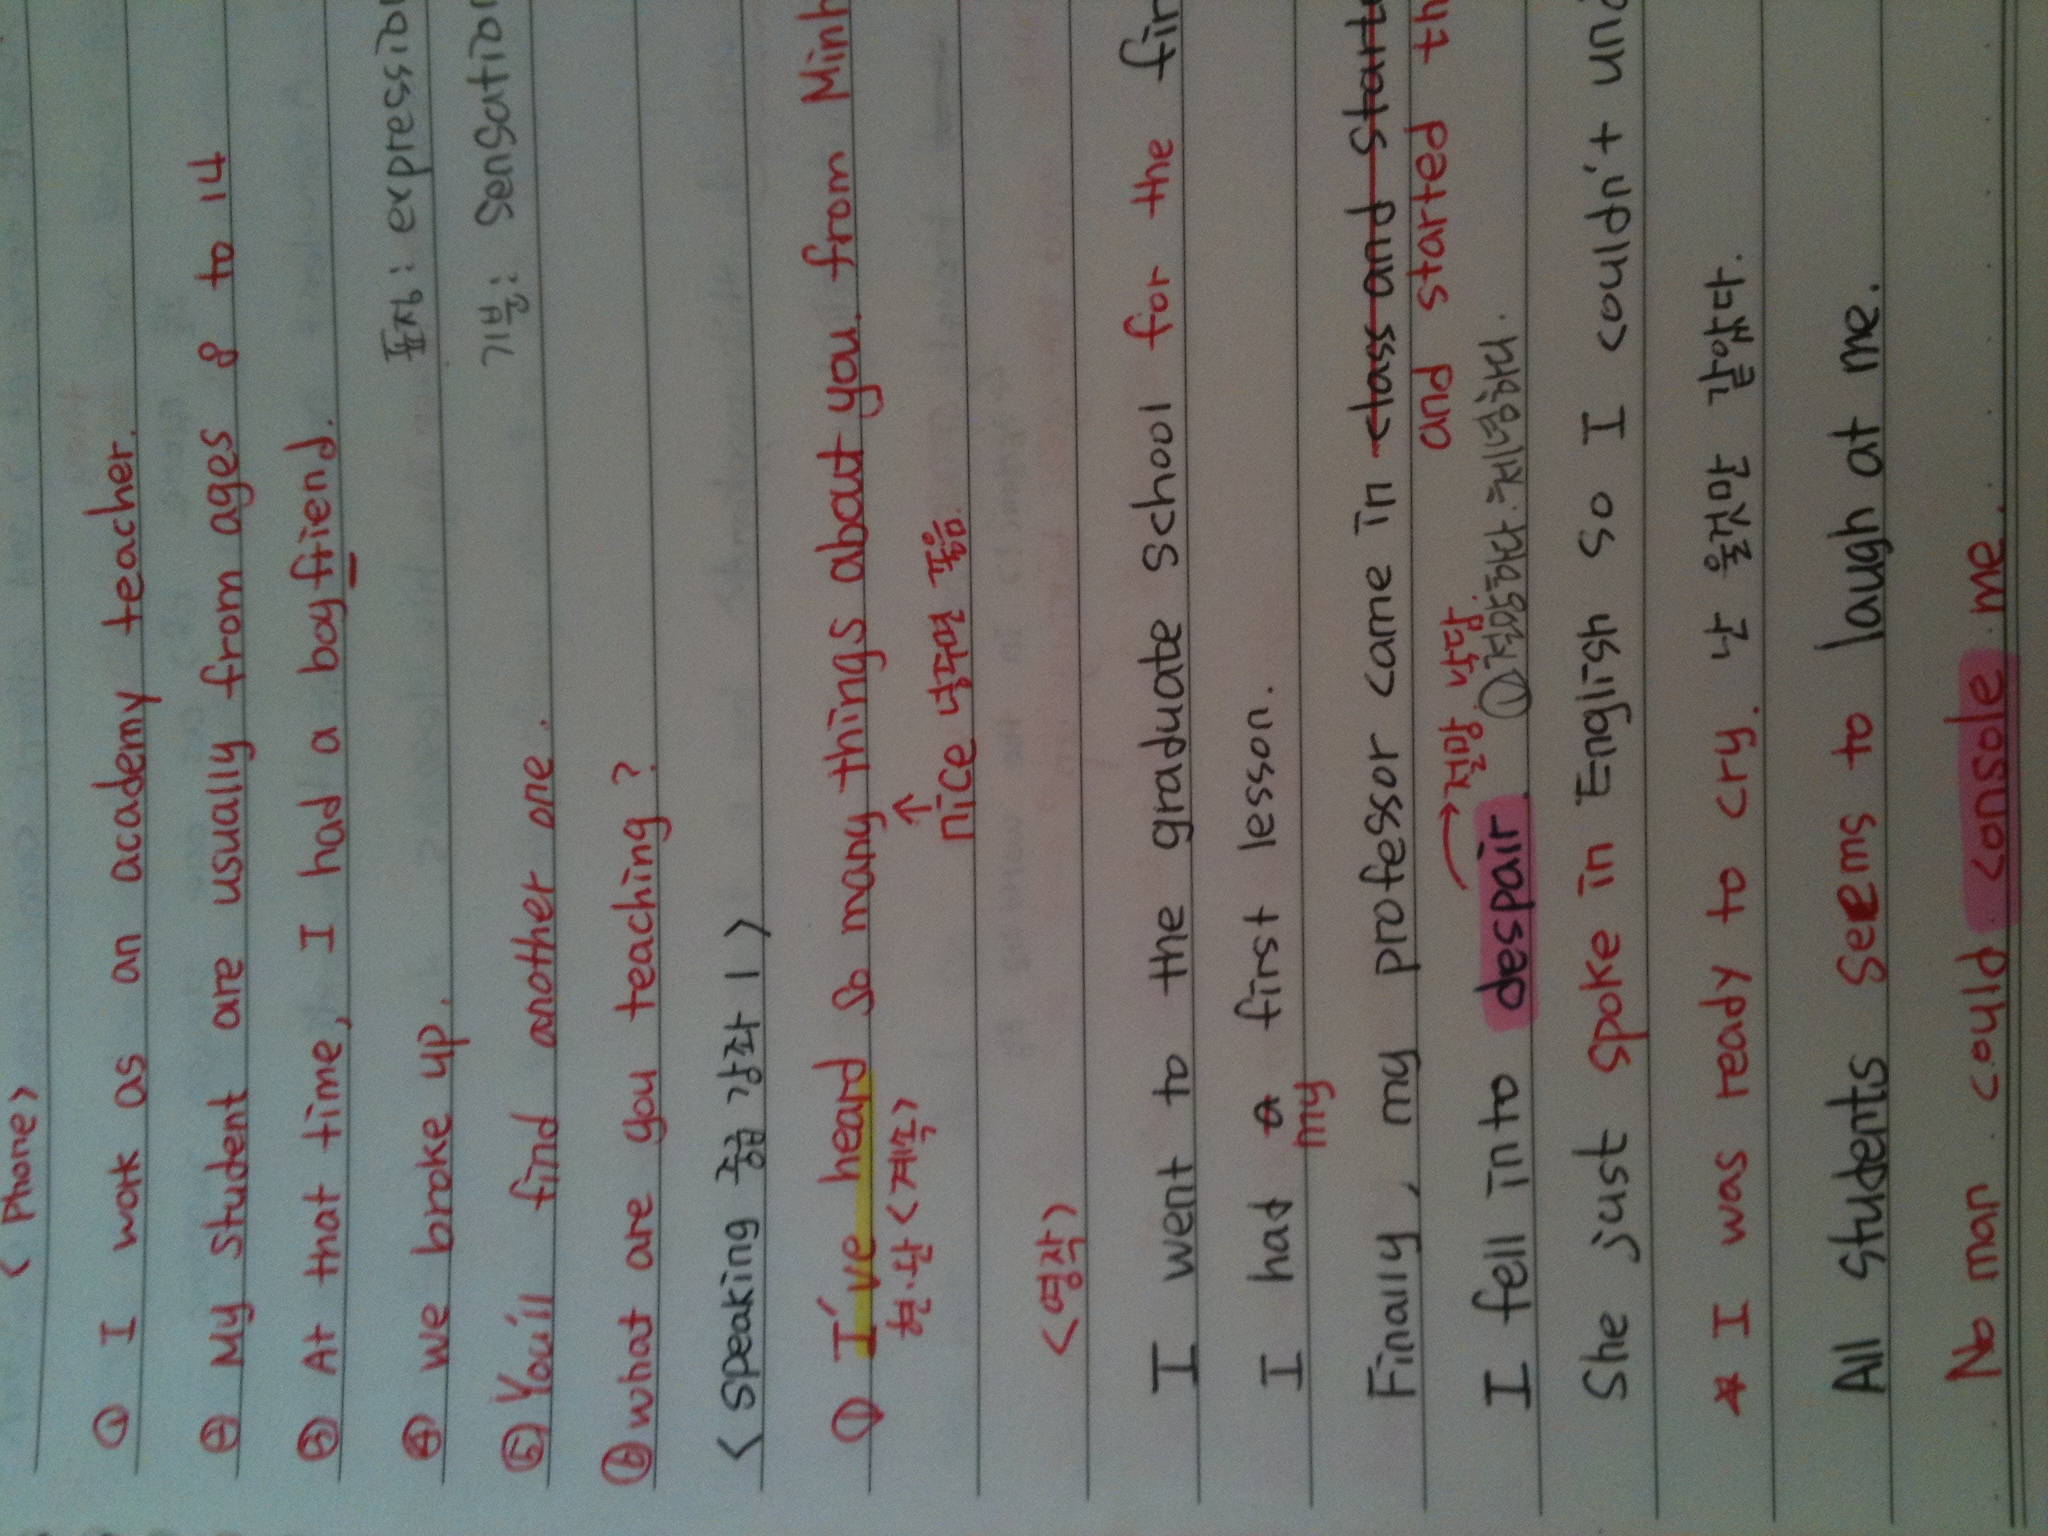 < Phone >
① I work as an academy teacher.
② My student are usually from ages 8 to 14
③ At that time, I had a boyfriend.
④ we broke up. 표현 : expressio
⑤ You'll find another one. 감각 : sensation
⑥ what are you teaching?
< speaking 종합 강좌 1 >
① I've heard so many things about you. from Minh
현.완 <계속> nice 넣으면 좋음.
< 영작 >
I went to the graduate school for the fir
I had a first lesson.
my
Finally, my professor came in class and start
and started th
I fell into despair. ①
She just spoke in English so I couldn't un
* I was ready to cry.
All students seems to laugh at me.
No man could console me.